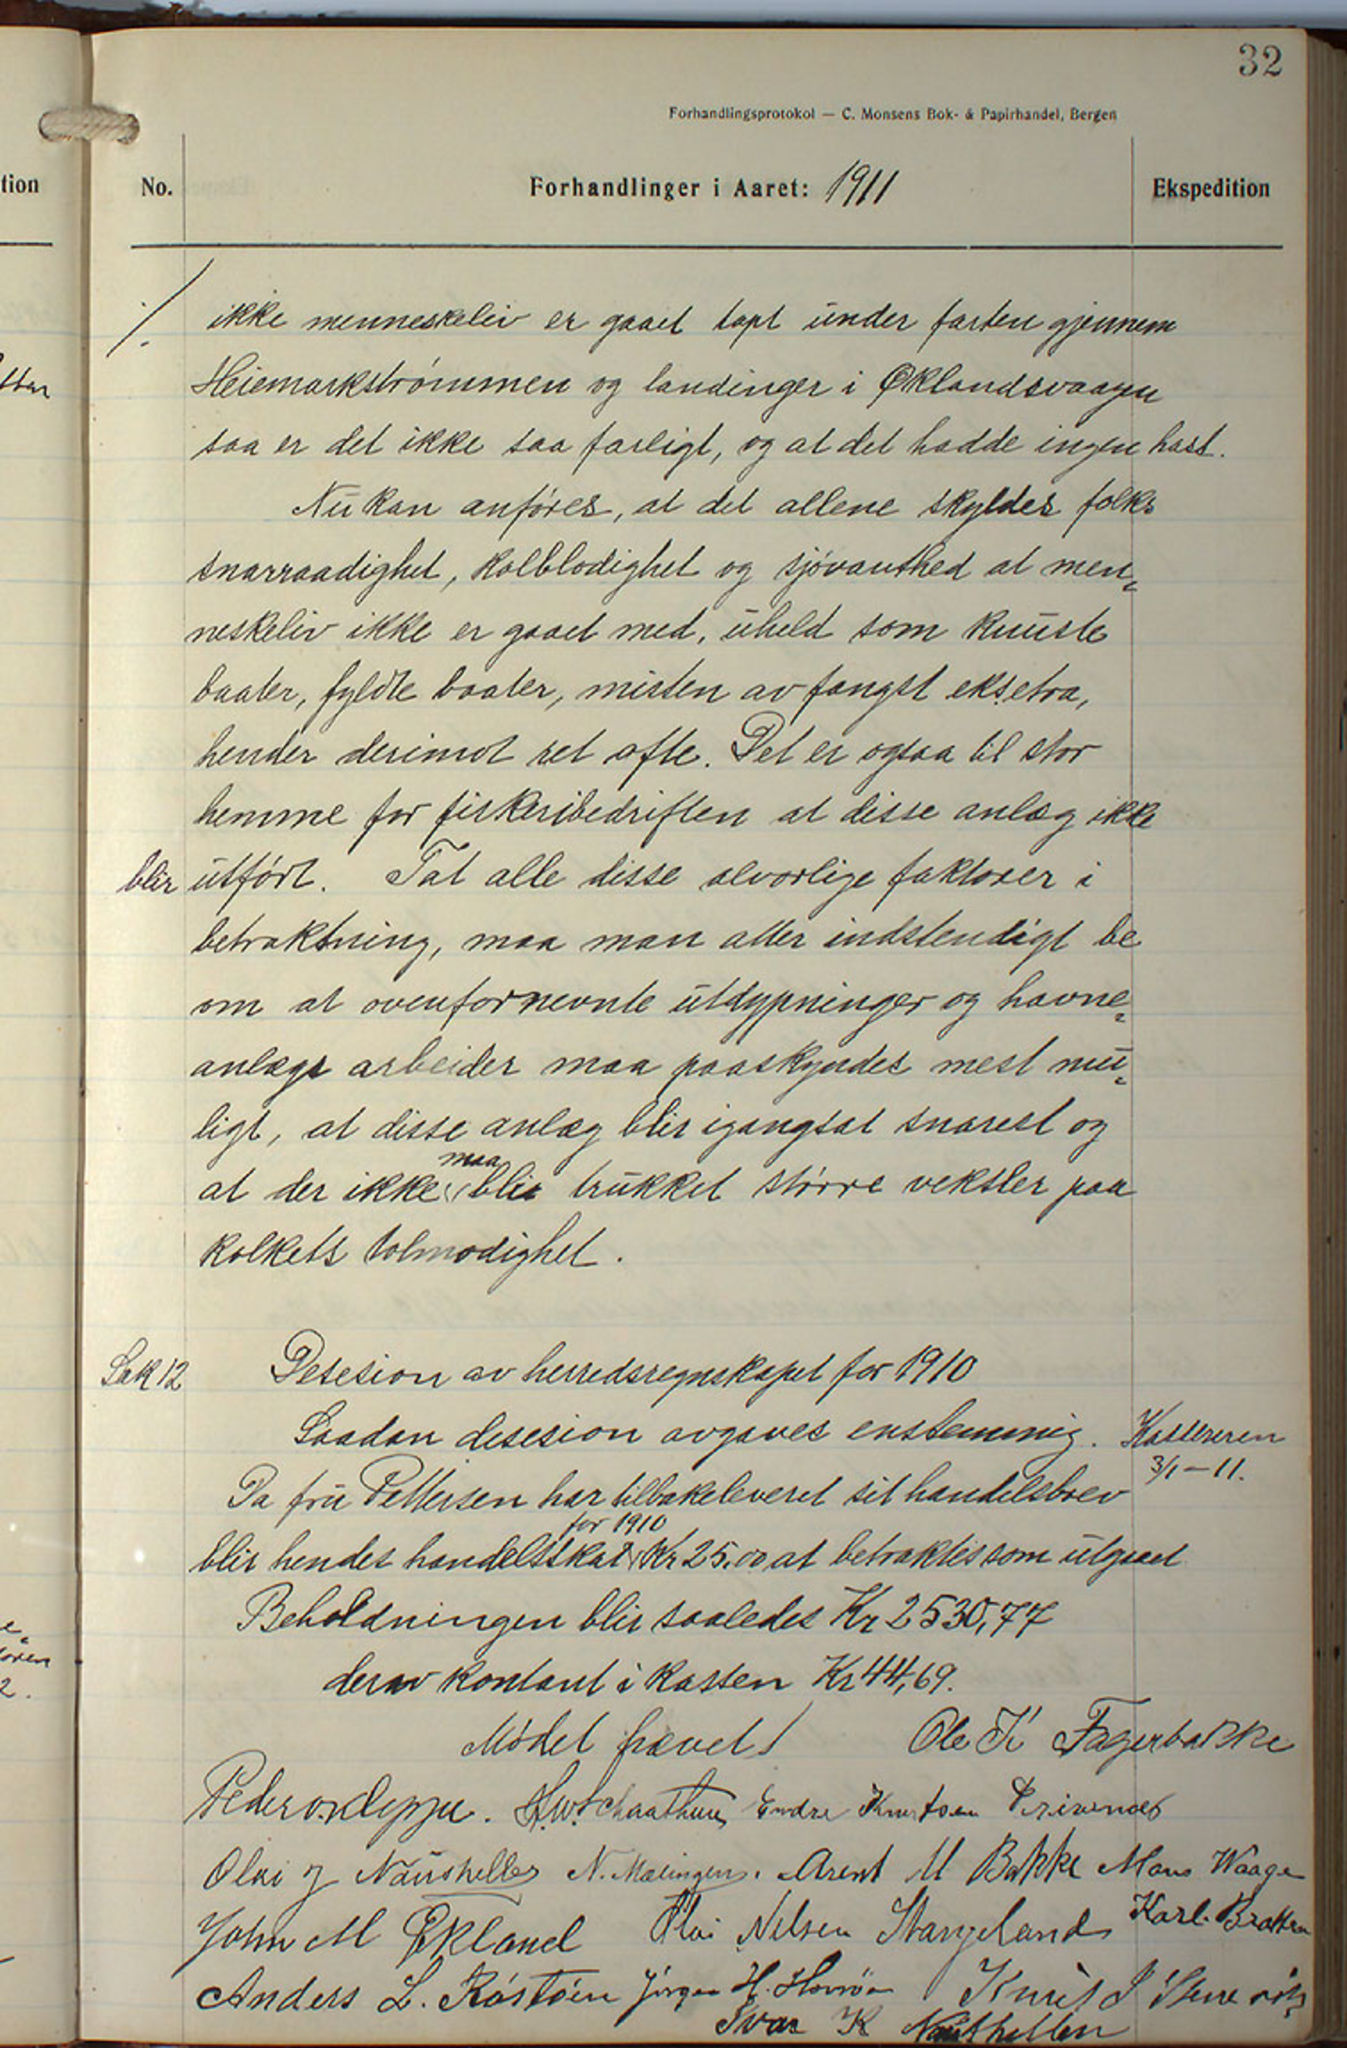 32
Forhandlingsprotokol — C. Monsens Bok- & Papirhandel, Bergen
tion No. Forhandlinger i Aaret: 1911 Ekspedition
ikke menneskeliv er gaaet tapt under farten gjennem
Heiemarkstrømmen og landinger i Øklandsvaagen
saa er det ikke saa farligt, og at det hadde ingen hast.
Nu kan anføres, at det allene skyldes folks
snarraadighet, kolblodighet og sjøvanthed at men„
neskeliv ikke er gaaet med, uheld som knuste
baater, fyldte baater, misten av fangst eksetra,
hender derimot ret ofte. Det er ogsaa til stor
hemme for fiskeribedriften at disse anlæg ikke
blir utført. Tat alle disse alvorlige faktorer i
betraktning, maa man atter indstendigt be
om at ovenfornevnte utdypninger og havne„
anlægs arbeider maa paaskyndes mest mu„
ligt, at disse anlæg blir igangsat snarest og
maa
at der ikke blir trukket større veksler paa
kolkets tolmodighet.
Sak 12 Desesion av herredsregnskapet for 1910
Saadan desesion avgaves enstemmig. Kassereren
3/1 – 11.
Da fru Pettersen har tilbakeleveret sit handelsbrev
for 1910
blir hendes handelsskat Kr 25,00 at betraktes som utgaaet
Beholdningen blir saaledes Kr 2530,77
derav kontant i kassen Kr 44,69.
Mødet hævet! Ole K Fagerbakke
Peder Endre Knutsen
Olai J Naustheller N. Mælingen. Arent M Bakke Mons Waage
John M Økland Olai Nilsen Stangeland Karl Bratten
Anders L. Røstøen Jørgen H. Hovsøen Knut J
Ivar K Nausthellen